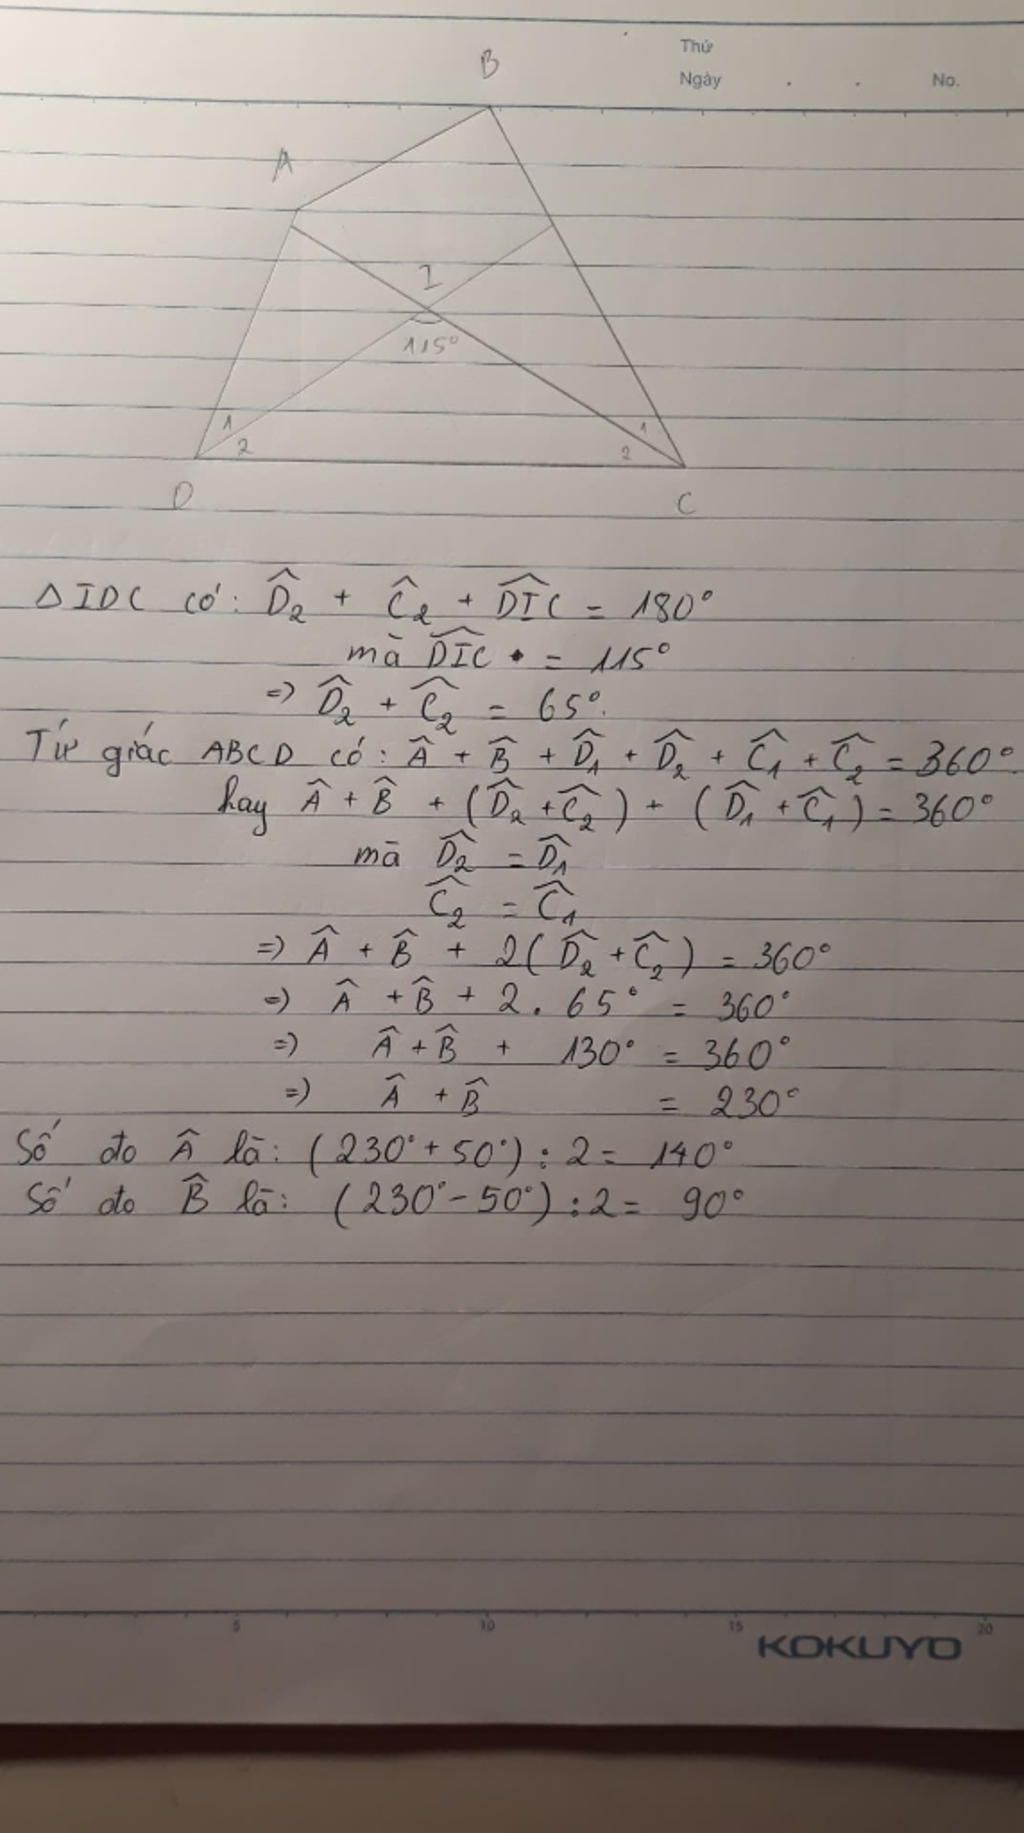 Thứ
Ngày . . No.
B
A
I
115°
1
2
1
2
D
C
Δ IDC có: D̂₂ + Ĉ₂ + DIC̑ = 180°
mà DIC̑ = 115°
=> D̂₂ + Ĉ₂ = 65°.
Tứ giác ABCD có: Â + B̂ + D̂₁ + D̂₂ + Ĉ₁ + Ĉ₂ = 360°.
hay Â + B̂ + (D̂₂ + Ĉ₂) + (D̂₁ + Ĉ₁) = 360°
mà D̂₂ = D̂₁
Ĉ₂ = Ĉ₁
=> Â + B̂ + 2(D̂₂ + Ĉ₂) = 360°
=> Â + B̂ + 2 . 65° = 360°
=> Â + B̂ + 130° = 360°
=> Â + B̂ = 230°
Số đo Â là: (230° + 50°) : 2 = 140°
Số đo B̂ là: (230° - 50°) : 2 = 90°
5 10 15 20
KOKUYO